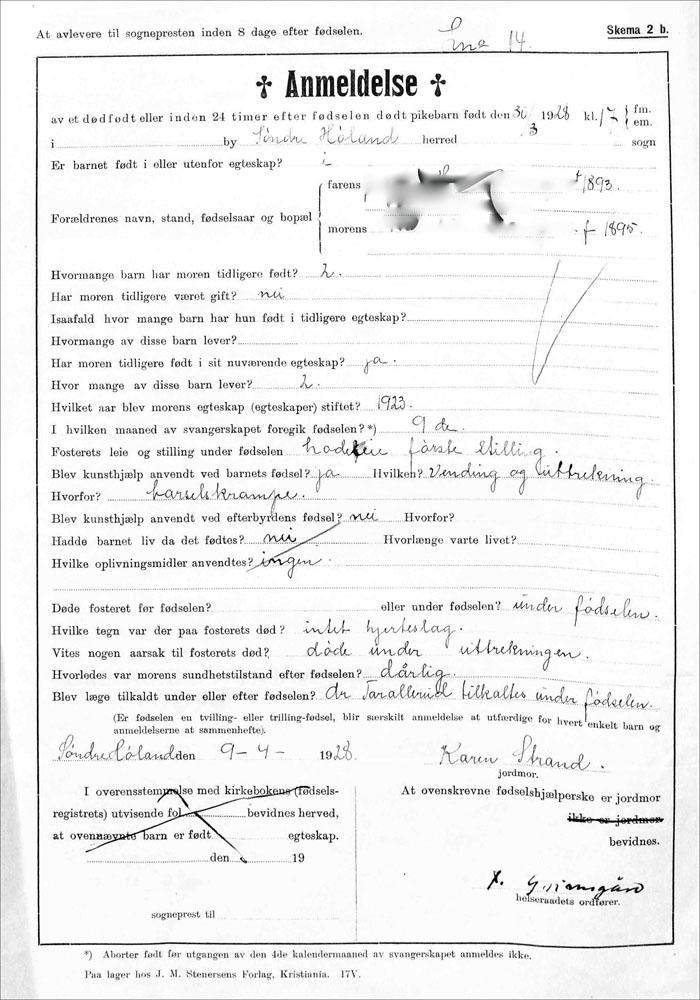 At avlevere til sognepresten inden 8 dage efter fødselen.
14.
Skema 2 b.
✝ Anmeldelse ✝
av et dødfødt eller inden 24 timer efter fødselen dødt pikebarn født den 30/3 1928 kl. 17 { fm. em.
i by Søndre Høland herred sogn
Er barnet født i eller utenfor egteskap? i
Forældrenes navn, stand, fødselsaar og bopæl
farens f 1893.
morens f 1895.
Hvormange barn har moren tidligere født? 2.
Har moren tidligere været gift? nei
Isaafald hvor mange barn har hun født i tidligere egteskap?
Hvormange av disse barn lever?
Har moren tidligere født i sit nuværende egteskap? ja.
Hvor mange av disse barn lever? 2.
Hvilket aar blev morens egteskap (egteskaper) stiftet? 1923.
I hvilken maaned av svangerskapet foregik fødselen?*) 9 de.
Fosterets leie og stilling under fødselen hodeleie første stilling.
Blev kunsthjælp anvendt ved barnets fødsel? ja Hvilken? Vending og uttrekning.
Hvorfor? barselskrampe.
Blev kunsthjælp anvendt ved efterbyrdens fødsel? nei Hvorfor?
Hadde barnet liv da det fødtes? nei Hvorlænge varte livet?
Hvilke oplivningsmidler anvendtes? ingen.
Døde fosteret før fødselen? eller under fødselen? under fødselen.
Hvilke tegn var der paa fosterets død? intet hjerteslag.
Vites nogen aarsak til fosterets død? døde under uttrekningen.
Hvorledes var morens sundhetstilstand efter fødselen? dårlig.
Blev læge tilkaldt under eller efter fødselen? dr Tarallerud tilkaltes under fødselen.
(Er fødselen en tvilling- eller trilling-fødsel, blir særskilt anmeldelse at utfærdige for hvert enkelt barn og
anmeldelserne at sammenhefte).
Søndre Høland den 9-4- 1928.
Karen Strand.
jordmor.
I overensstemmelse med kirkeboken (fødsels-
registrets) utvisende fol. bevidnes herved,
at ovennævnte barn er født egteskap.
den 19
sogneprest til
At ovenskrevne fødselshjælperske er jordmor
ikke er jordmor
bevidnes.
helseraadets ordfører.
*) Aborter født før utgangen av den 4de kalendermaaned av svangerskapet anmeldes ikke.
Paa lager hos J. M. Stenersens Forlag, Kristiania. 17V.